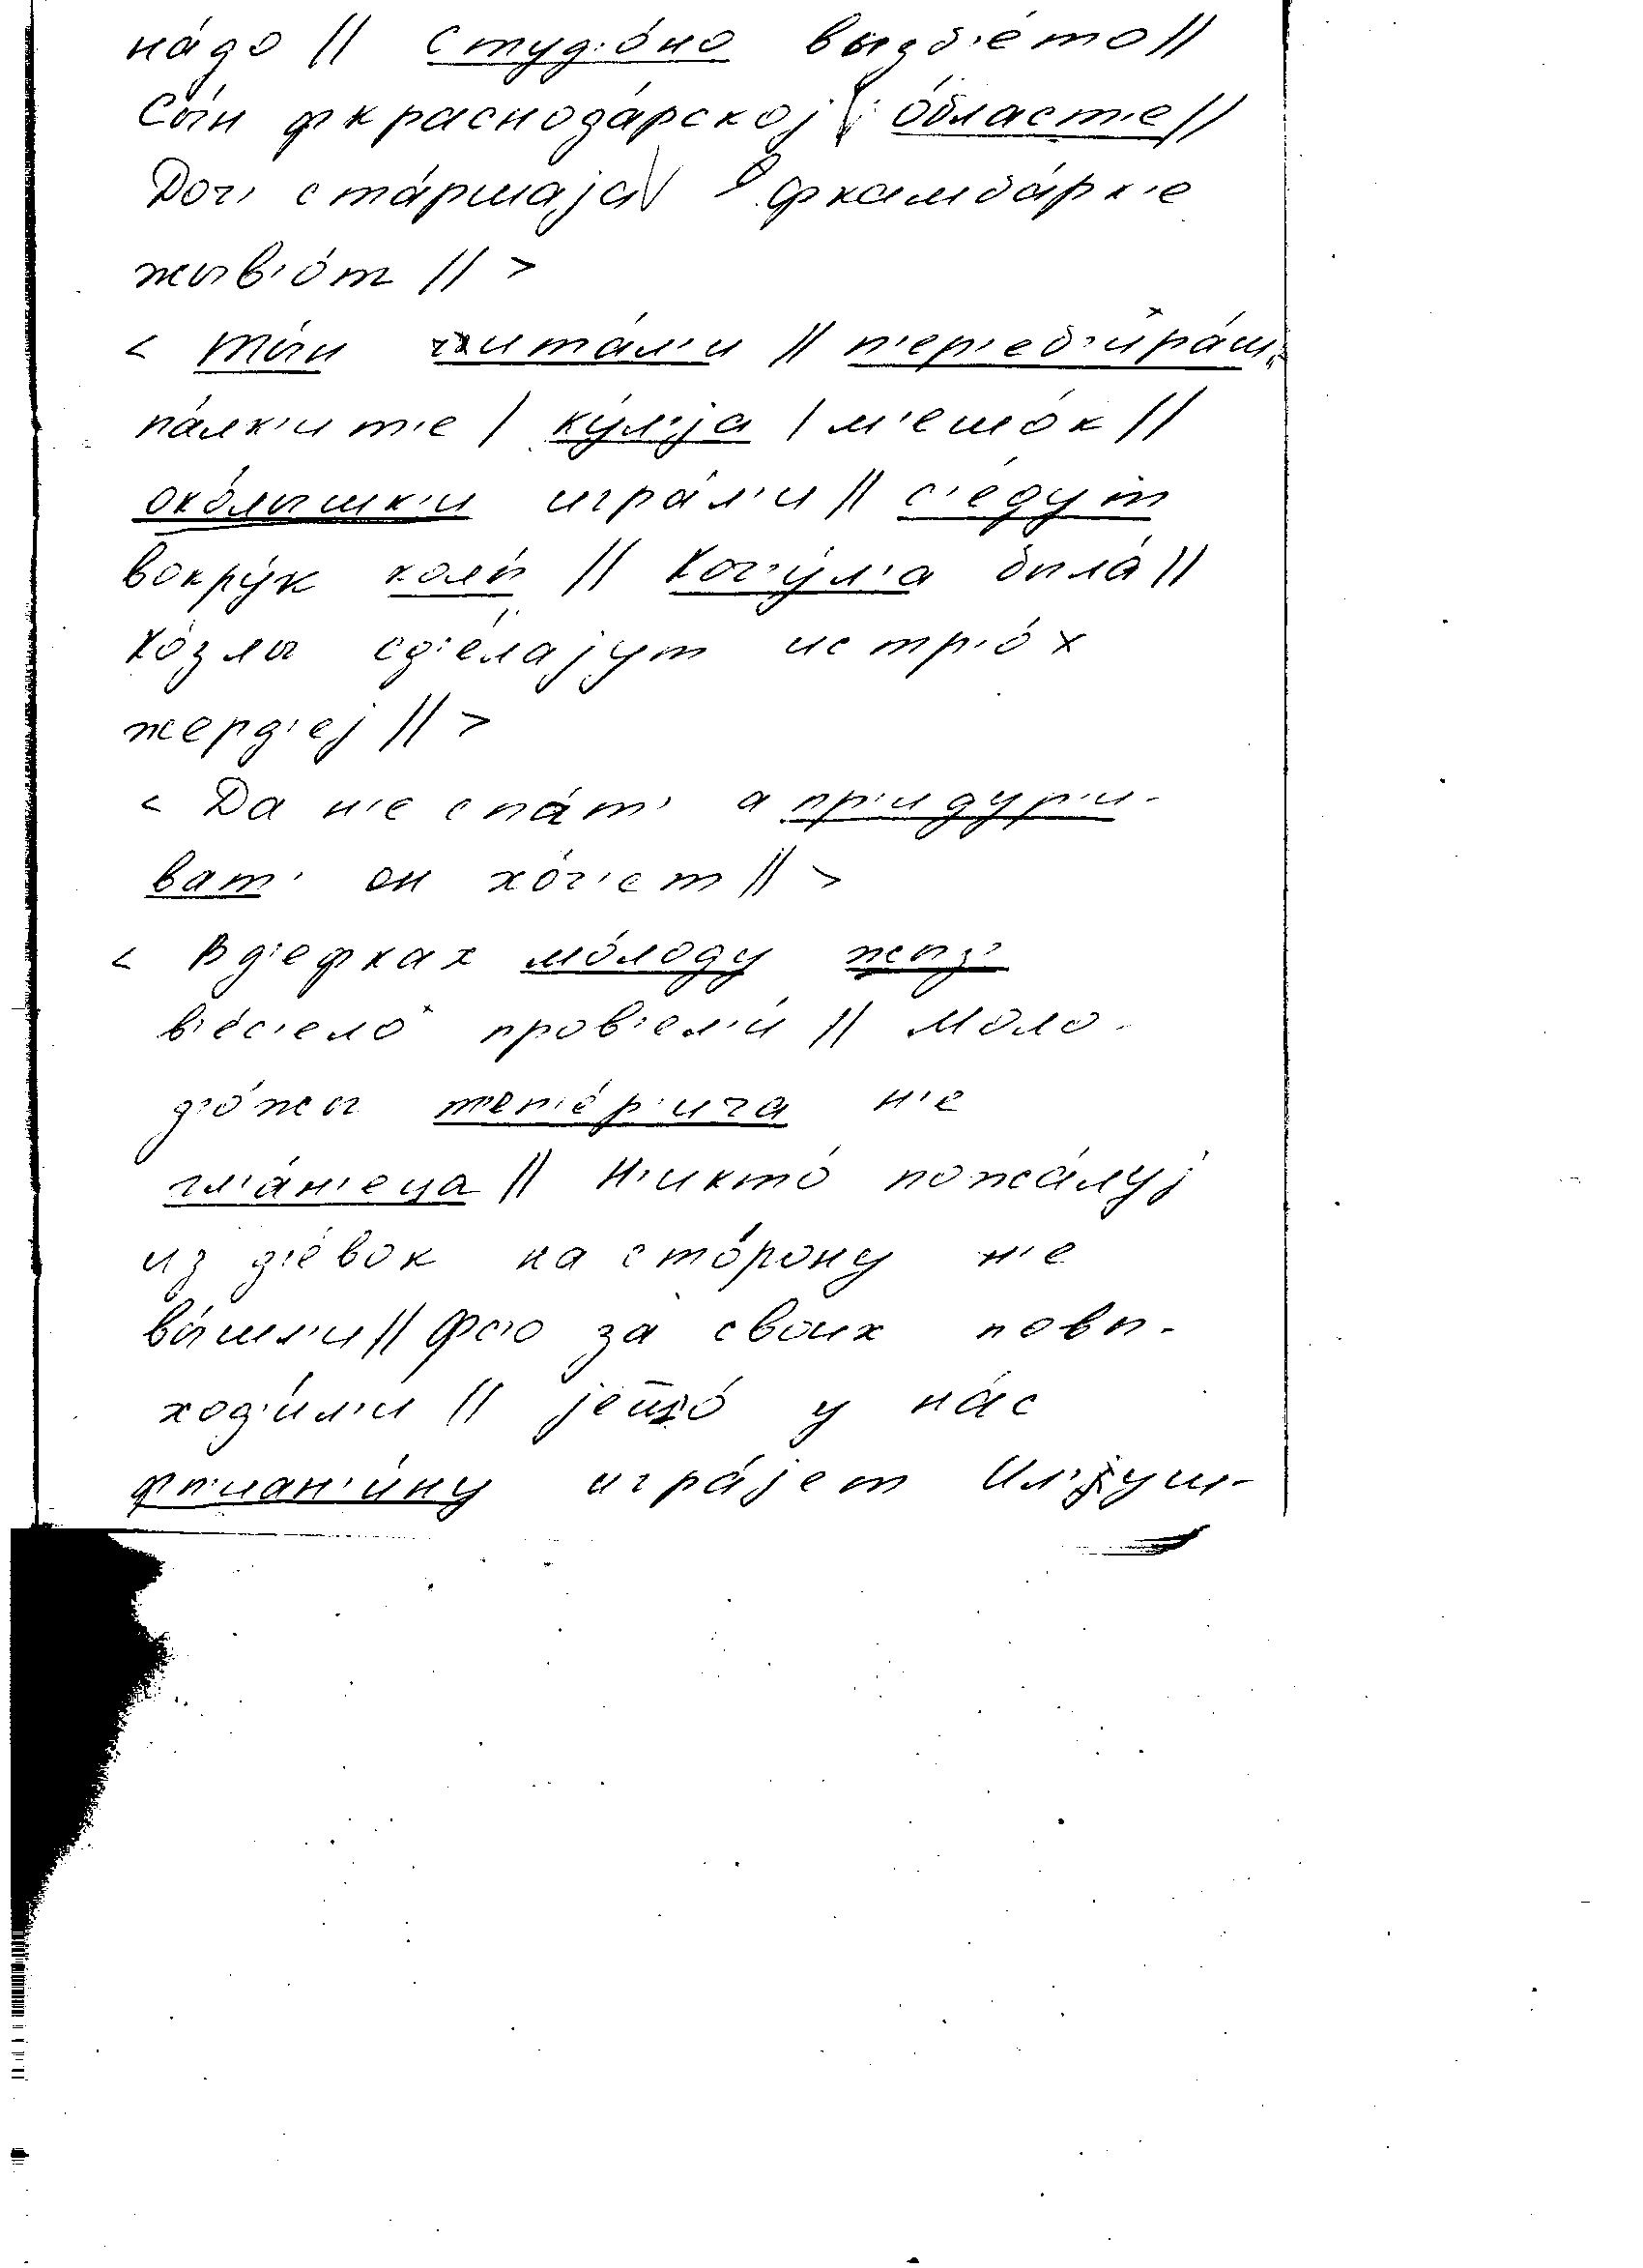 на́до // студ'о́но вызб'е́то //
Сы́н фкраснода́рској о́бласт'е //
Доч' ста́ршаја фкамба́рк'е
жыв'о́т // >
< ты́н читáл'и // п'ер'еб'ира́ш
па́лк'и т'е / ку́л'ја / м'ешо́к //
око́лышк'и игра́л'и // с'е́дут
вокру́к колы́ // Коч'у́л'а была́ //
Ко́злы сд'е́лајут ис тр'о́х
жерд'еј // >
< Да н'е спа́т' а пр'идур'и-
ват' он хо́ч'ет // >
< В д'ефках мо́лоду жыз'
в'е́с'ело пров'ел'и́ // Моло-
д'о́жы т'еп'е́р'ича н'е
гл'а́н'еца // Н'икто́ пожа́луј
из д'е́вок на сто́рону н'е
вы́шл'и // Фс'о за своих повы-
ход'и́л'и // јешо́ у на́с
фт'иан'и́ну игра́јет Ил'јуш-